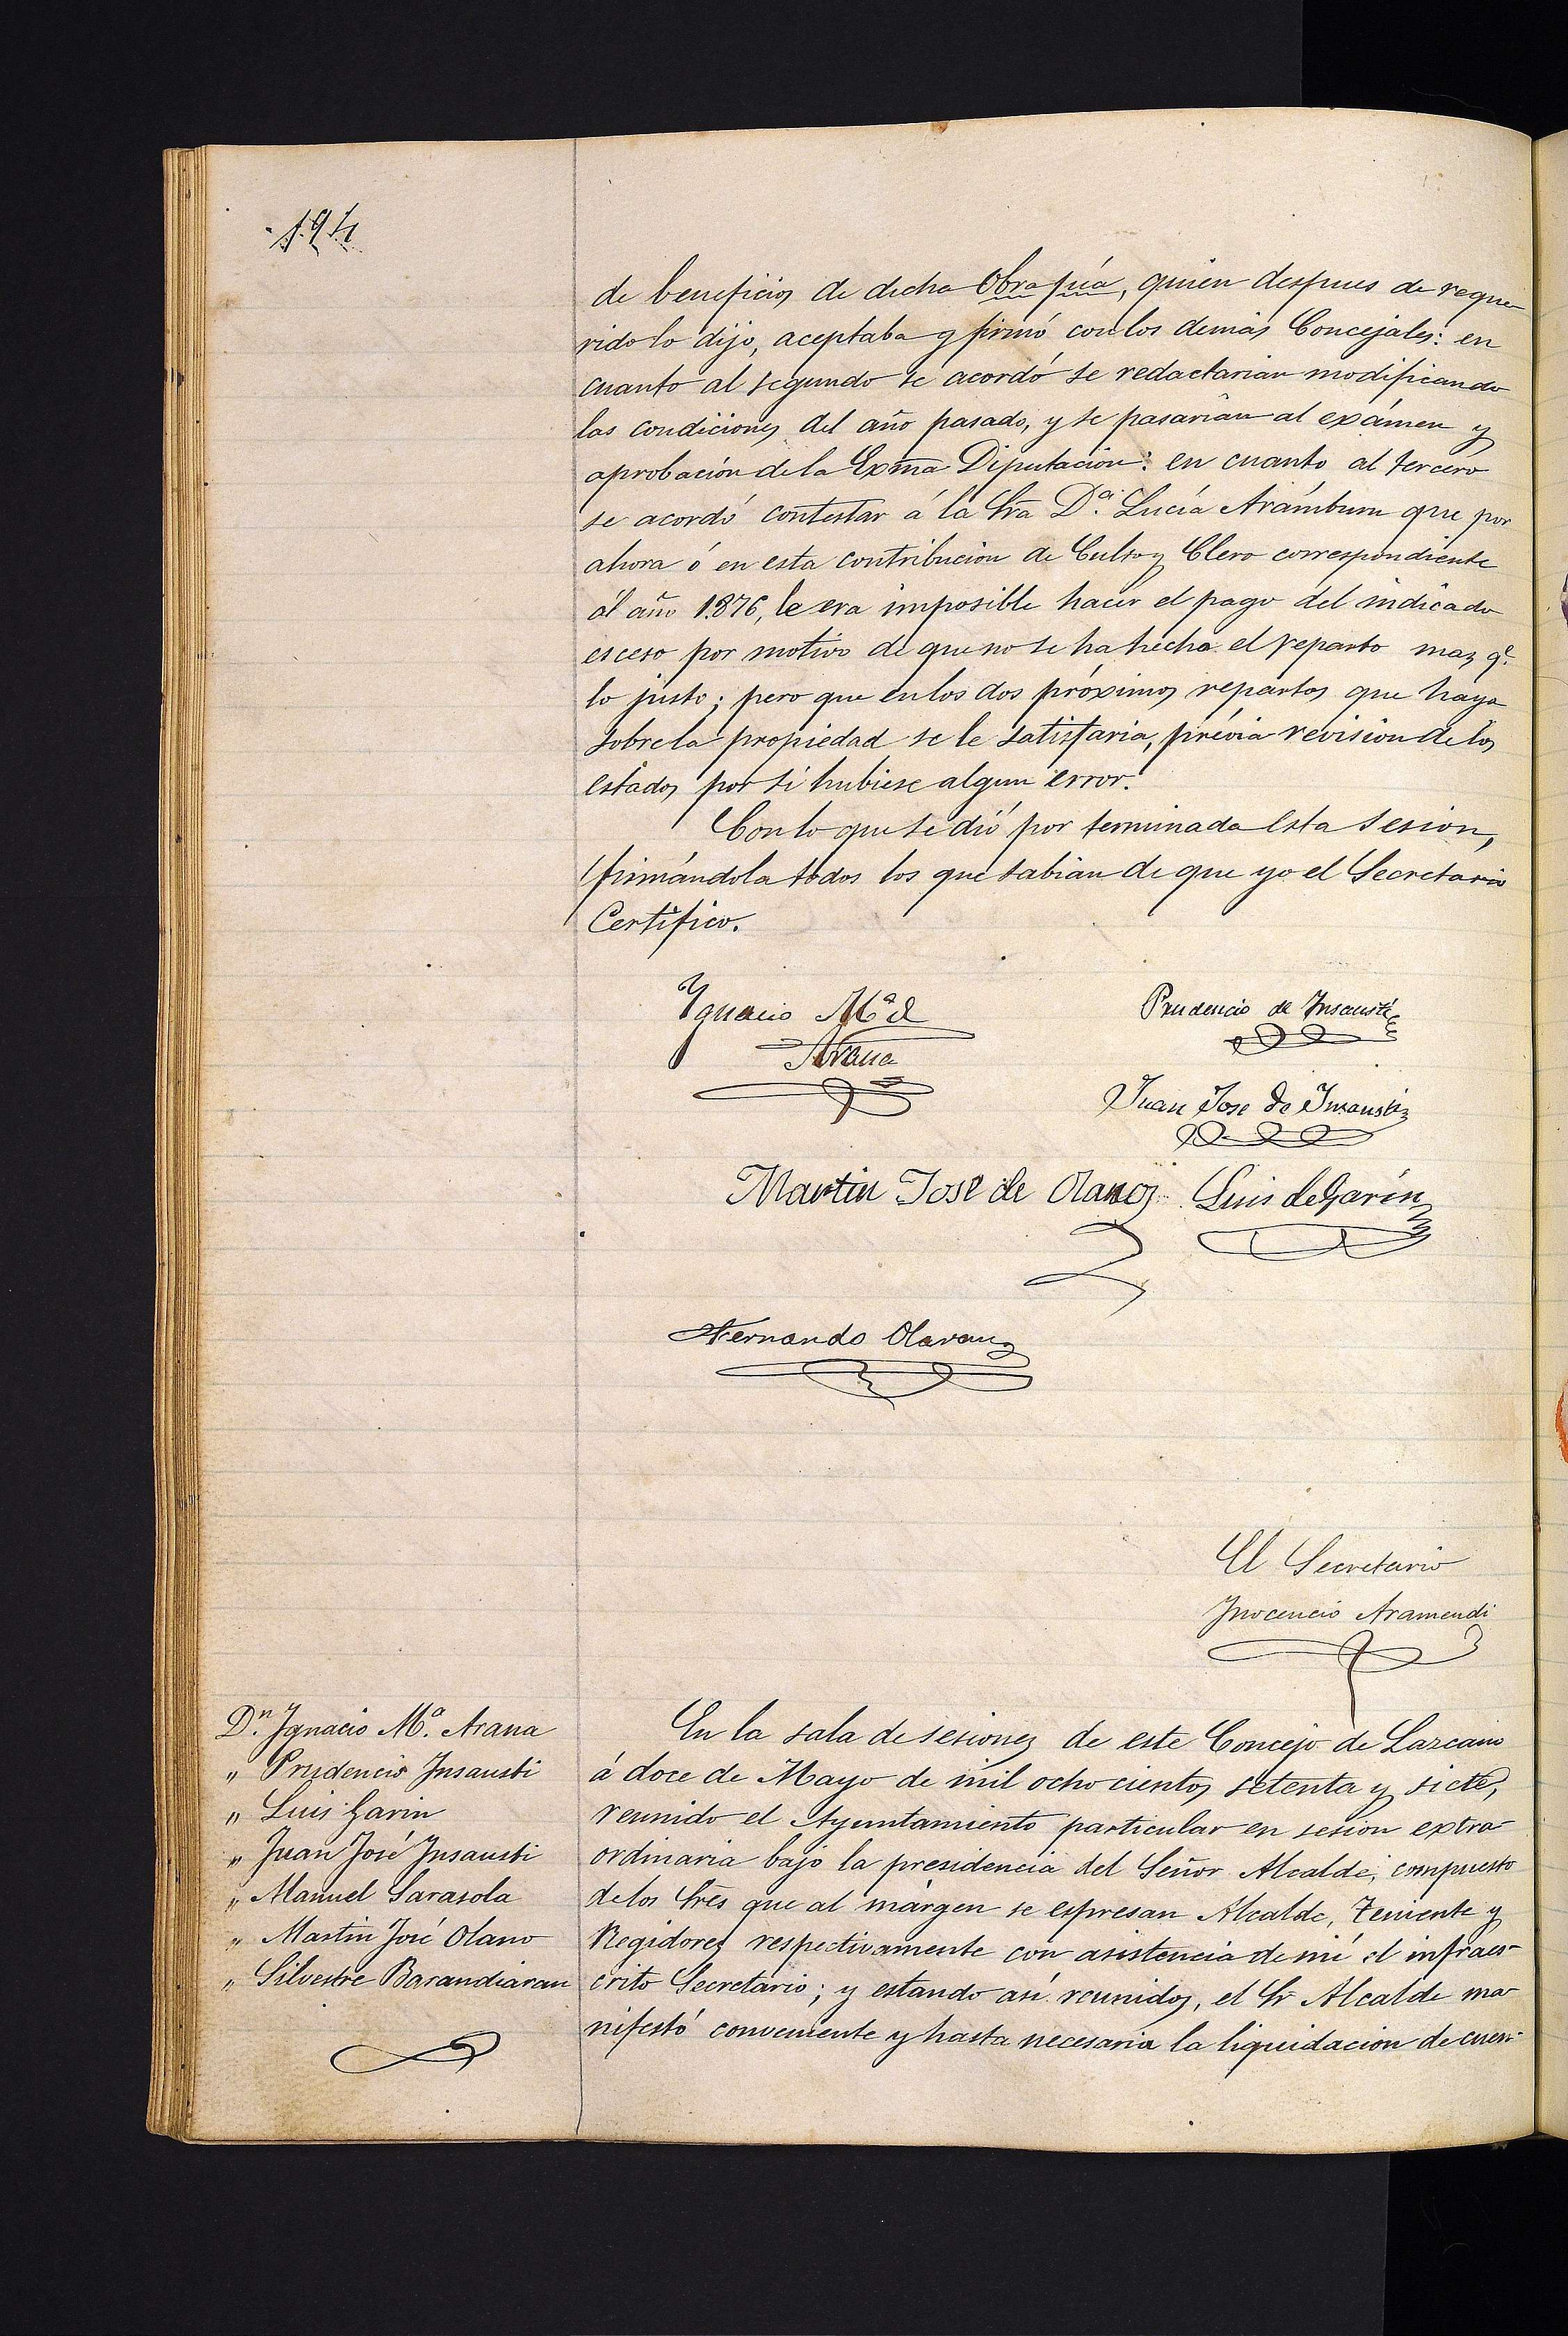 194
de beneficios de dicha Obra pía, quien despues de reque-
rido lo dijo, aceptaba y firmó con los demás Concejales: en
cuanto al segundo se acordó se redactarian modificando
las condiciones del año pasado, y se pasarian al exámen y
aprobación de la Exma Diputación: en cuanto al tercero
se acordó contestar á la Sra D.ª Lucía Arámburu que por
ahora ó en esta contribucion de Culto y Clero correspondiente
al año 1.876, le era imposible hacer el pago del indicado
esceso por motivo de que no se ha hecho el reparto mas q.e
lo justo; pero que en los dos próximos repartos que haya
sobre la propiedad se le satisfaria, prévia revision de los
estados por si hubiese algun error.
Con lo que se dió por terminada esta sesion,
firmándola todos los que sabian de que yo el Secretario
Certifico.
Ygnacio M.ª d
Arana
Prudencio de Insausti
Juan Jose de Insausti
Martin Jose de Olano
Luis de Garín
Fernando Olaran
El Secretario
Inocencio Aramendi
D.n Ignacio M.ª Arana
" Prudencio Insausti
" Luis Garin
" Juan José Insausti
" Manuel Sarasola
" Martin José Olano
" Silvestre Barandiáran
En la sala de sesiones de este Concejo de Lazcano
á doce de Mayo de mil ocho cientos setenta y siete,
reunido el Ayuntamiento particular en sesion extra-
ordinaria bajo la presidencia del Señor Alcalde, compuesto
de los Sres que al márgen se espresan Alcalde, Teniente y
Regidores respectivamente con asistencia de mí el infraes-
crito Secretario; y estando asi reunidos, el Sr Alcalde ma-
nifestó conveniente y hasta necesaria la liquidacion de cuen-